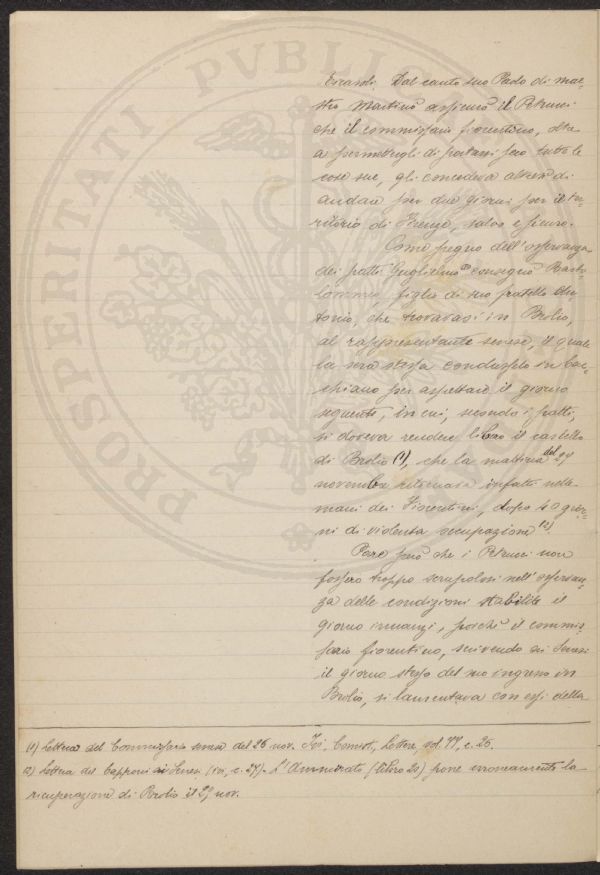 PROSPERITATI PVBLICAE
Dal canto suo Paolo di mae-
stro Martino assicurò il Petrucci
che il commissario fiorentino, oltre
a permettergli di portarsi seco tutte le
cose sue, gli concedeva altresì di
andare per due giorni per il ter-
ritorio di Firenze, salvo e sicuro.
Come pegno dell'osservanza
dei patti Guglielmo consegnò Barto-
lommeo, figlio di suo fratello An-
tonio, che trovavasi in Brolio,
al rappresentante senese, il quale
la sera stessa condusselo in
per aspettare il giorno
seguente, in cui, secondo i patti,
si doveva rendere libero il castello
di Brolio (1), che la mattina del 27
novembre ritornava infatti nelle
mani dei Fiorentini, dopo 40 gior-
ni di violenta occupazione (2).
Pare però che i Petrucci non
fossero troppo scrupolosi nell'osservan-
za delle condizioni stabilite il
giorno innanzi, perchè il commis-
sario fiorentino, scrivendo ai Senesi
il giorno stesso del suo ingresso in
Brolio, si lamentava con essi della
(1) Lettera del Commissario senese del 26 nov. Ivi, Concist., Lettere, vol. 77, c. 25.
(2) Lettera del Capponi ai Senesi (ivi, c. 27). L'Ammirato (libro 20) pone erroneamente la
ricuperazione di Brolio il 29 nov.